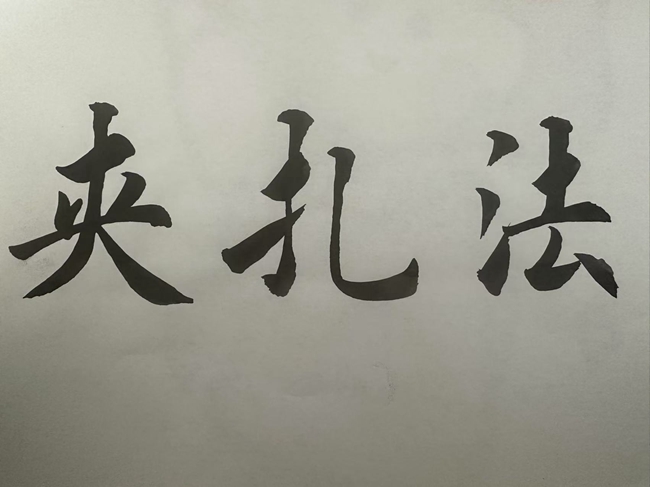 夹扎法